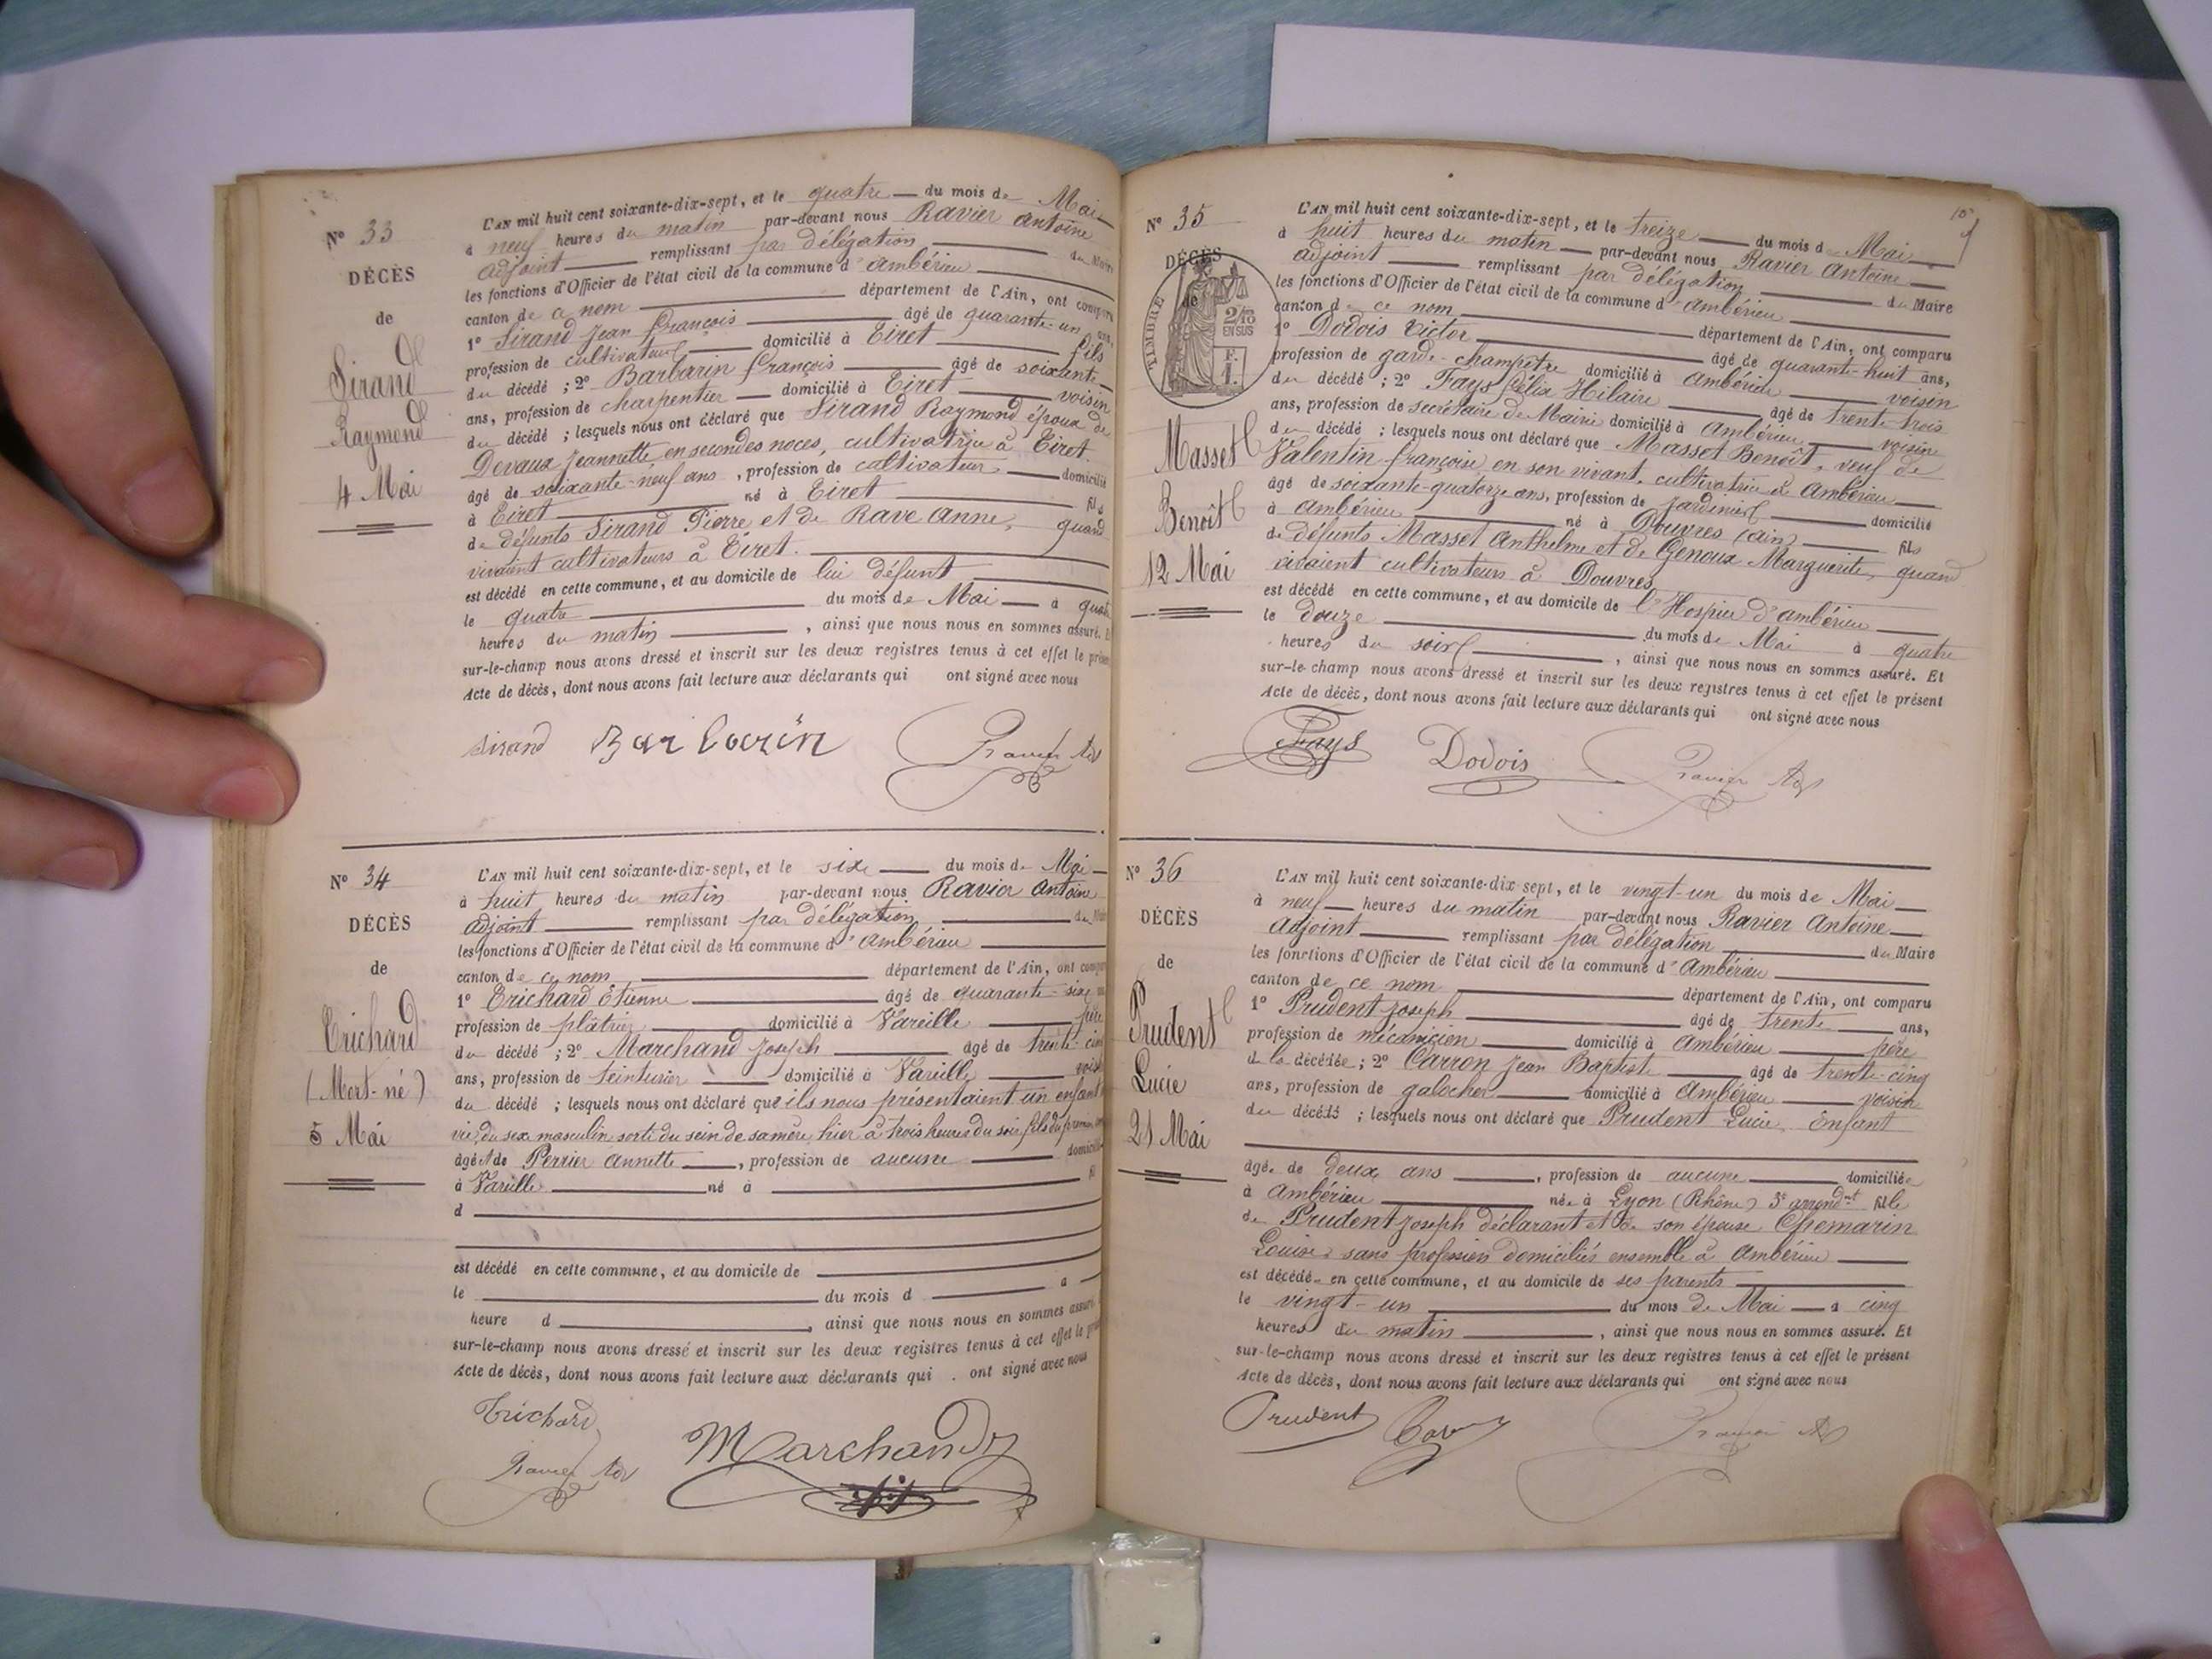 N° 33
DÉCÈS
de
Sirand
Raymond
4 Mai
L'AN mil huit cent soixante-dix-sept, et le quatre du mois de Mai
à neuf heures du matin par-devant nous Ravier Antoine
adjoint remplissant par délégation du Maire
les fonctions d'Officier de l'état civil de la commune d'Ambérieu
canton de ce nom département de l'Ain, ont comparu
1° Sirand Jean François âgé de quarante-un ans,
profession de cultivateur domicilié à Tiret fils
du décédé ; 2° Barbarin François âgé de soixante
ans, profession de charpentier domicilié à Tiret voisin
du décédé ; lesquels nous ont déclaré que Sirand Raymond époux de
Devaux Jeannette en secondes noces, cultivatrice à Tiret
âgé de soixante-neuf ans, profession de cultivateur domicilié
à Tiret né à Tiret fils
de défunts Sirand Pierre et de Rave Anne, quand
vivaient cultivateurs à Tiret.
est décédé en cette commune, et au domicile de lui défunt
le quatre du mois de Mai à quatre
heures du matin, ainsi que nous nous en sommes assuré. Et
sur-le-champ nous avons dressé et inscrit sur les deux registres tenus à cet effet le présent
Acte de décès, dont nous avons fait lecture aux déclarants qui ont signé avec nous
Sirand Barbarin Ravier Adj
N° 34
DÉCÈS
de
Trichard
(Mort-né)
5 Mai
L'AN mil huit cent soixante-dix-sept, et le six du mois de Mai
à huit heures du matin par-devant nous Ravier Antoine
adjoint remplissant par délégation du Maire
les fonctions d'Officier de l'état civil de la commune d'Ambérieu
canton de ce nom département de l'Ain, ont comparu
1° Trichard Etienne âgé de quarante-six
profession de plâtrier domicilié à Vareille père
du décédé ; 2° Marchand Joseph âgé de trente-cinq
ans, profession de teinturier domicilié à Vareille voisin
du décédé ; lesquels nous ont déclaré que ils nous présentaient un enfant
vie, du sexe masculin sorti du sein de sa mère, hier à trois heures du soir fils du premier
âgé et de Perrier Annette, profession de aucune domicilié
à Vareille né à fil
d
est décédé en cette commune, et au domicile de
le du mois d à
heure d, ainsi que nous nous en sommes assuré.
sur-le-champ nous avons dressé et inscrit sur les deux registres tenus à cet effet le présent
Acte de décès, dont nous avons fait lecture aux déclarants qui ont signé avec nous
Trichard
Ravier Adj Marchand
N° 35
DÉCÈS
de
TIMBRE
2/10
EN SUS
Masset
Benoît
12 Mai
L'AN mil huit cent soixante-dix-sept, et le treize du mois d Mai
à huit heures du matin par-devant nous Ravier Antoine
adjoint remplissant par délégation du Maire
les fonctions d'Officier de l'état civil de la commune d'Ambérieu
canton de ce nom département de l'Ain, ont comparu
1° Dodois Victor âgé de quarante-huit ans,
profession de garde-champêtre domicilié à Ambérieu voisin
du décédé ; 2° Fays Félix Hilaire âgé de trente-trois
ans, profession de secrétaire de Mairie domicilié à Ambérieu voisin
du décédé ; lesquels nous ont déclaré que Masset Benoît, veuf de
Valentin Françoise, en son vivant, cultivatrice à Ambérieu
âgé de soixante-quatorze ans, profession de jardinier domicilié
à Ambérieu né à Douvres (Ain) fils
de défunts Masset Anthelme et de Genoux Marguerite, quand
vivaient cultivateurs à Douvres
est décédé en cette commune, et au domicile de l'Hospice d'Ambérieu
le douze du mois de Mai à quatre
heures du soir, ainsi que nous nous en sommes assuré. Et
sur-le-champ nous avons dressé et inscrit sur les deux registres tenus à cet effet le présent
Acte de décès, dont nous avons fait lecture aux déclarants qui ont signé avec nous
Fays Dodois Ravier Adj
N° 36
DÉCÈS
de
Prudent
Lucie
21 Mai
L'AN mil huit cent soixante-dix-sept, et le vingt-un du mois de Mai
à neuf heures du matin par-devant nous Ravier Antoine
adjoint remplissant par délégation du Maire
les fonctions d'Officier de l'état civil de la commune d'Ambérieu
canton de ce nom département de l'Ain, ont comparu
1° Prudent Joseph âgé de trente ans,
profession de mécanicien domicilié à Ambérieu père
de la décédée ; 2° Carron Jean Baptiste âgé de trente-cinq
ans, profession de galocher domicilié à Ambérieu voisin
du décédé ; lesquels nous ont déclaré que Prudent Lucie, Enfant
âgée de deux ans, profession de aucune domiciliée
à Ambérieu née à Lyon (Rhône) 3e arrondmt fille
de Prudent Joseph déclarant et de son épouse Chemarin
Louise, sans profession domiciliés ensemble à Ambérieu
est décédée en cette commune, et au domicile de ses parents
le vingt-un du mois de Mai à cinq
heures du matin, ainsi que nous nous en sommes assuré. Et
sur-le-champ nous avons dressé et inscrit sur les deux registres tenus à cet effet le présent
Acte de décès, dont nous avons fait lecture aux déclarants qui ont signé avec nous
Prudent Ravier Adj